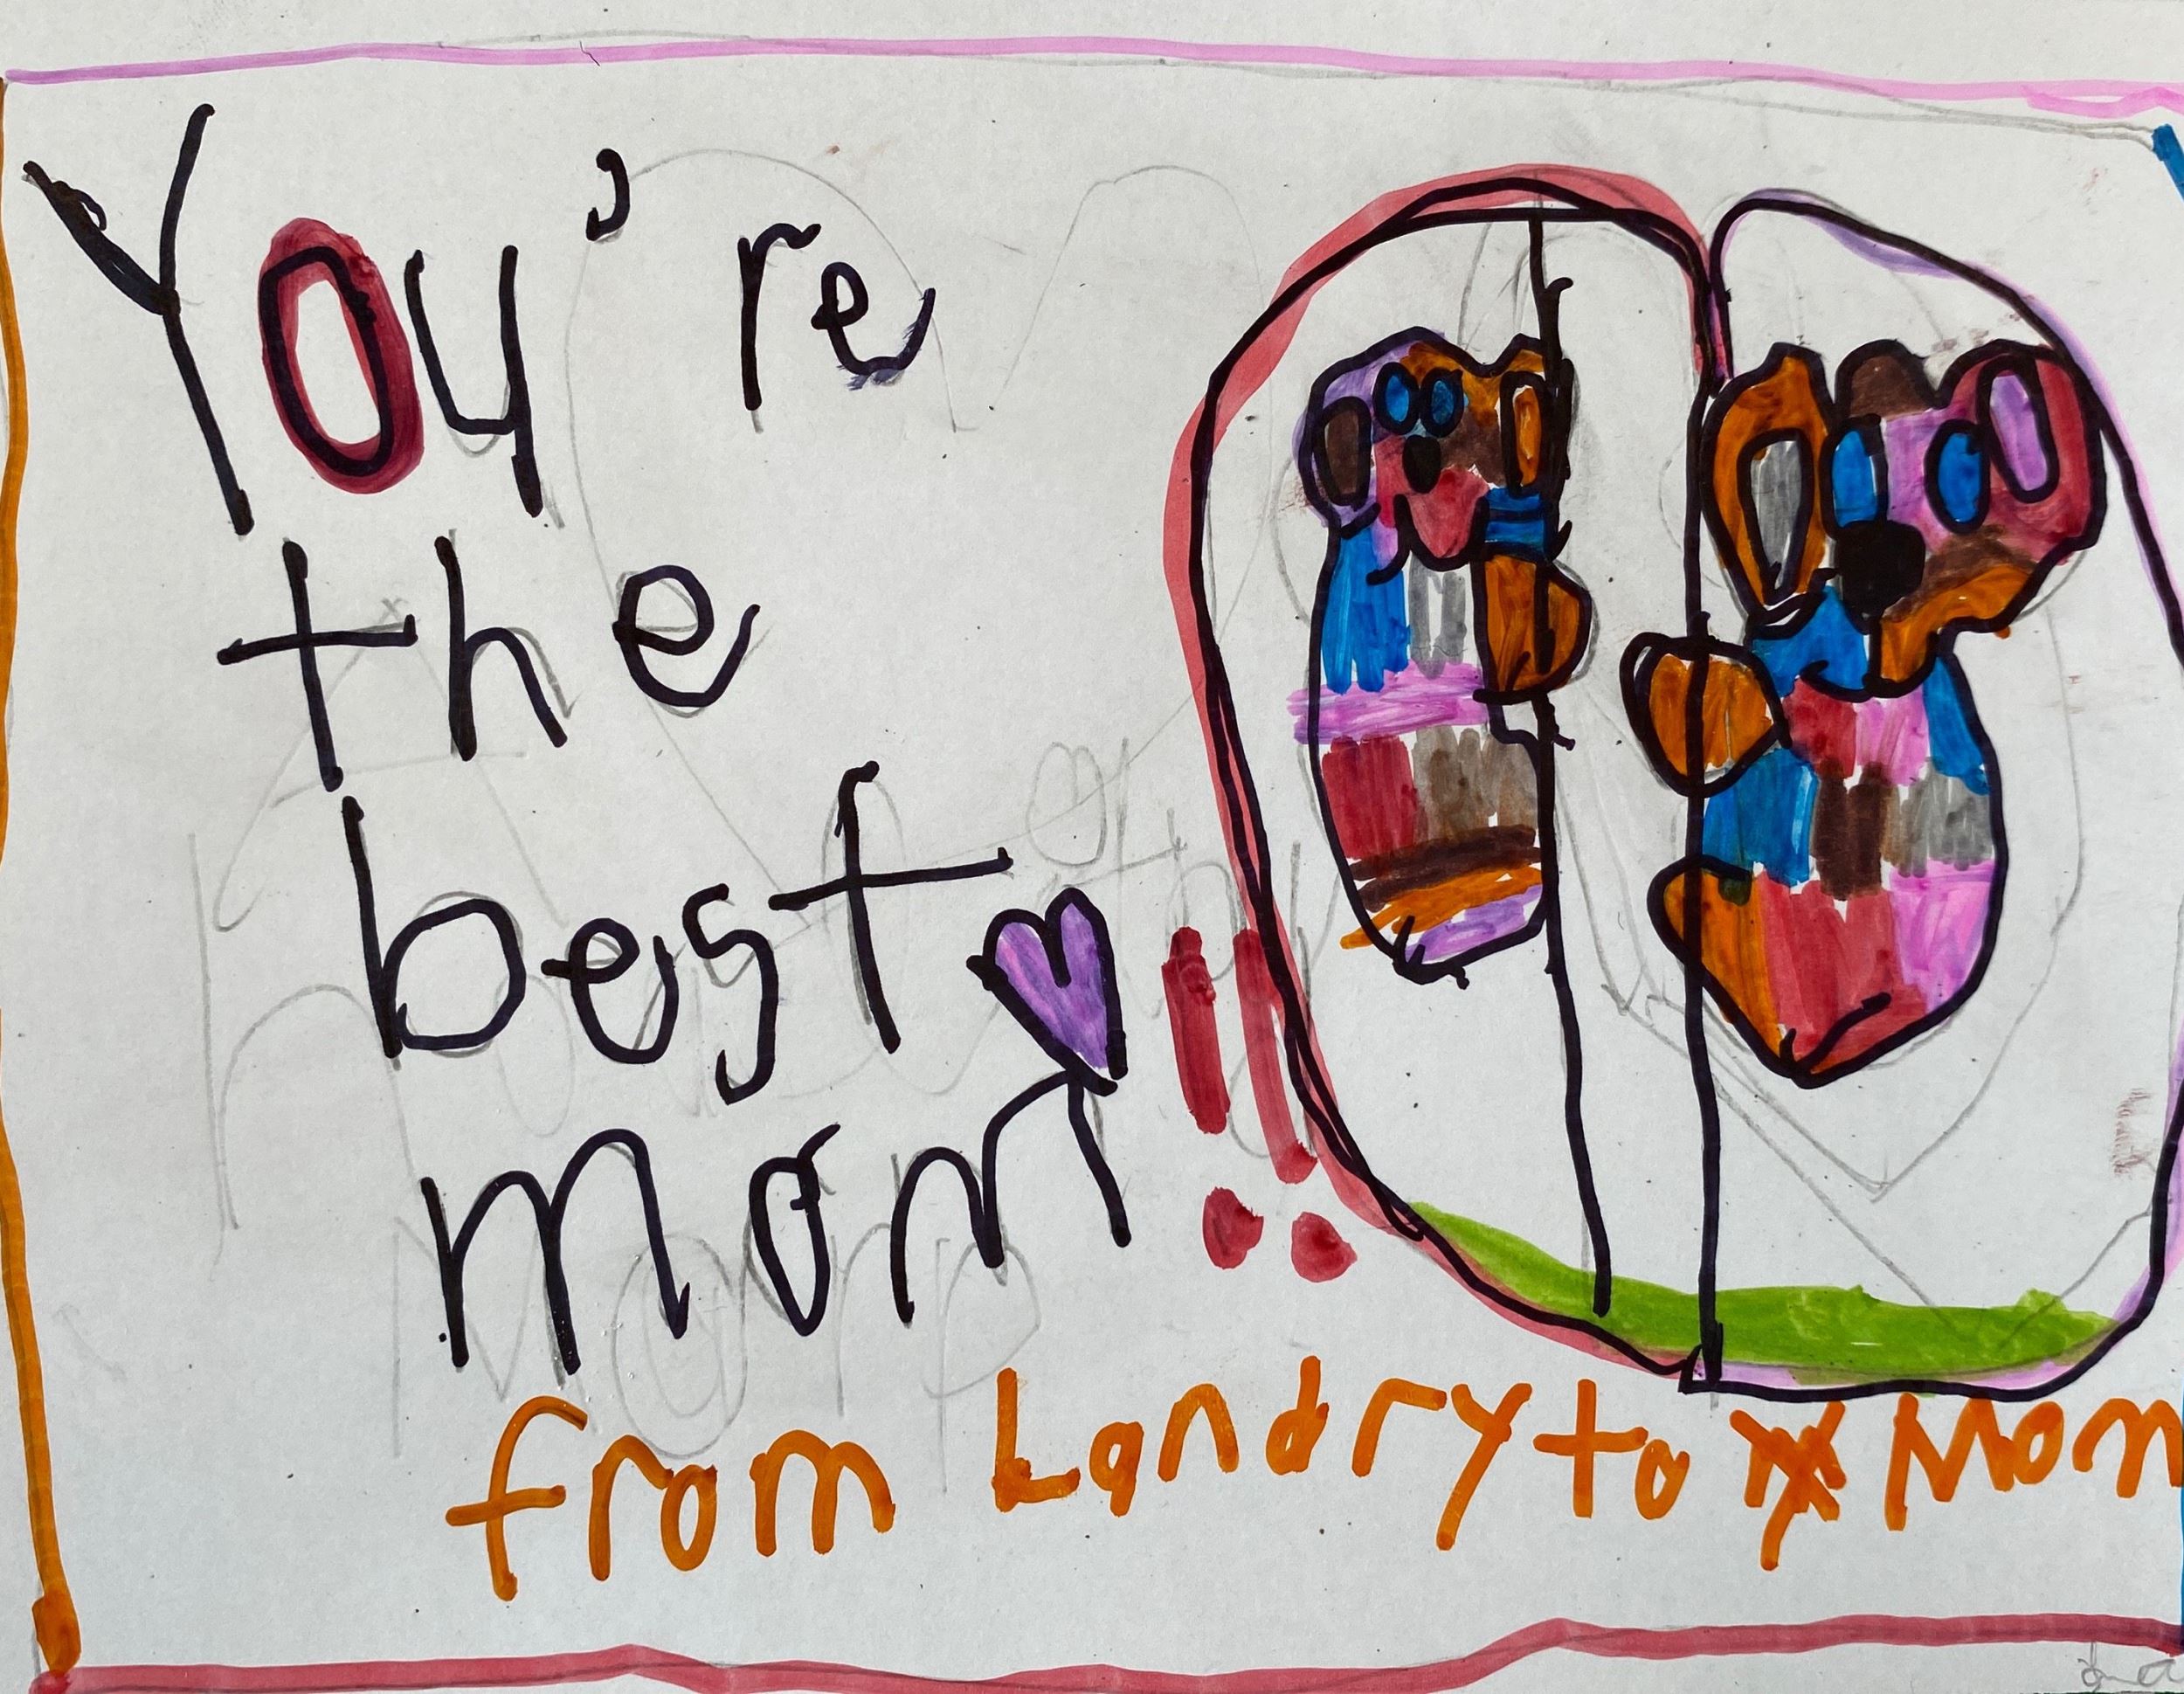 You're
the
best
mom!!
from Landry to Mom